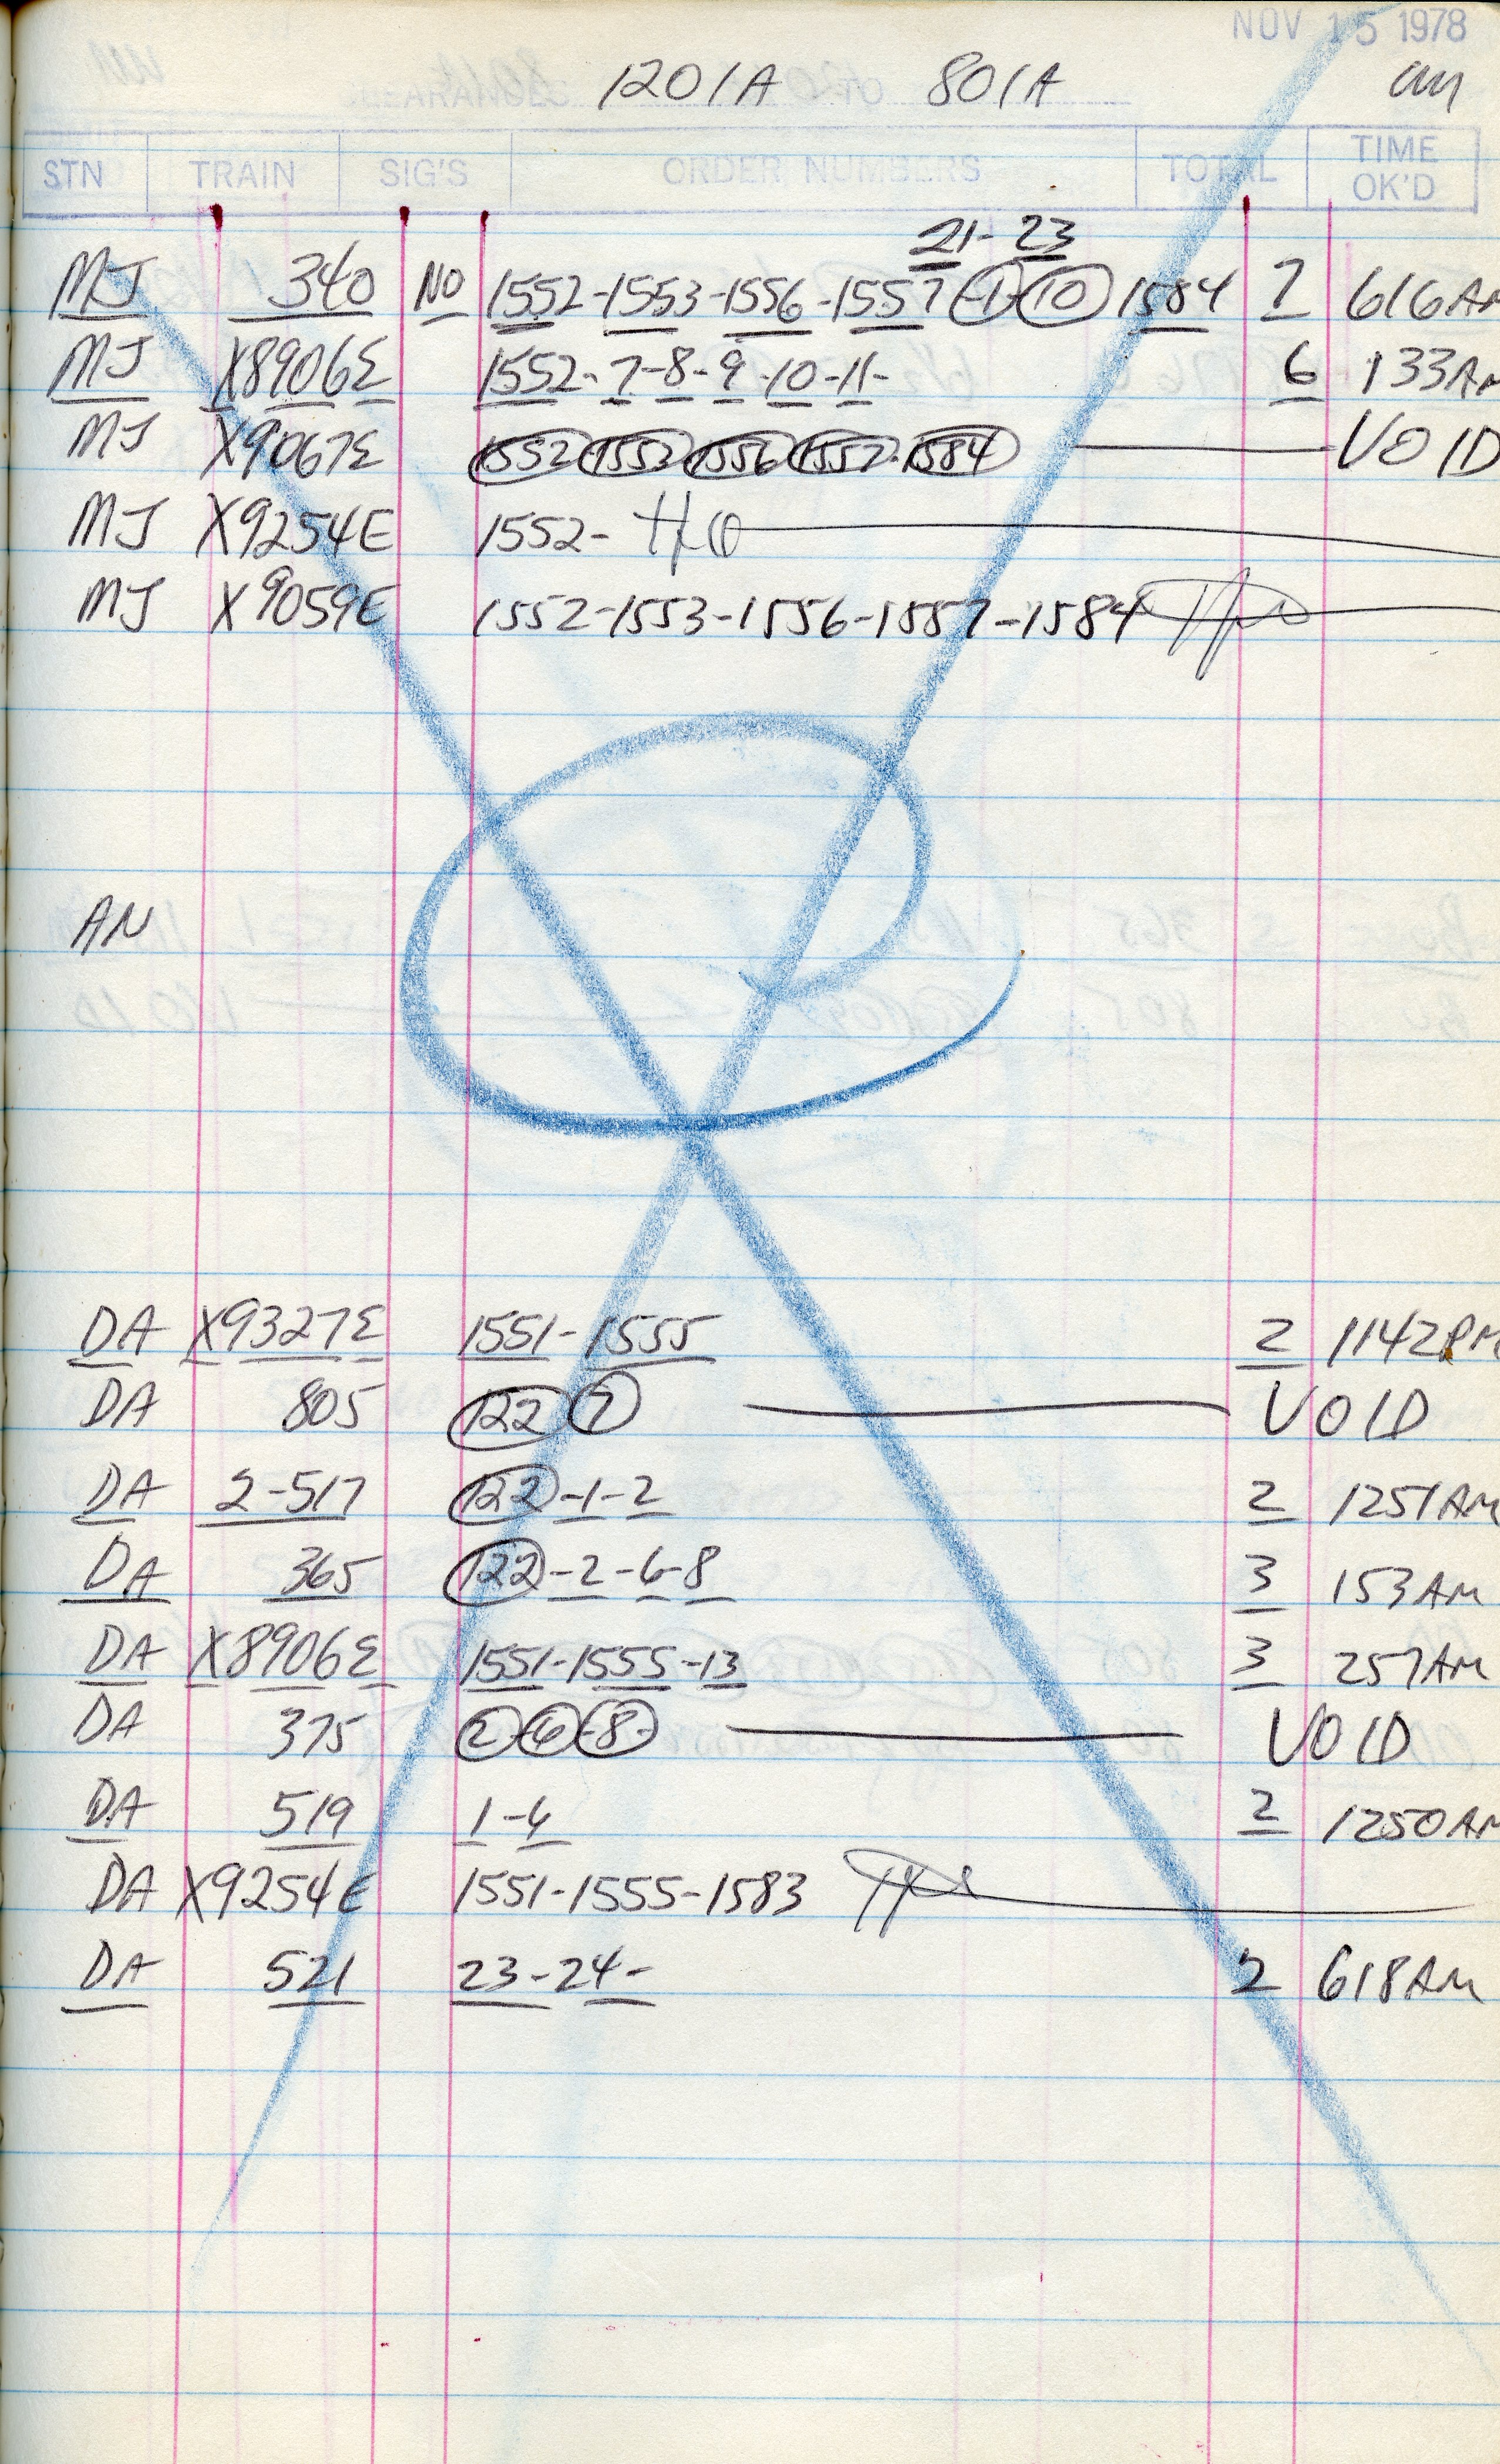 NOV 15 1978
1201A 801A
STN TRAIN SIG'S ORDER NUMBERS TOTAL TIME OK'D
21-23
MJ 340 NO 1552-1553-1556-1557-1-10 1584 7 616AM
MJ X8906E 1552-7-8-9-10-11- 6 133AM
MJ X9067E 1552 1553 1556 1557 1584 VOID
MJ X9254E 1552-
MJ X9059E 1552-1553-1556-1557-1584
AN
DA X9327E 1551-1555 2 1142PM
DA 805 122 7 VOID
DA 2-517 122-1-2 2 1251AM
DA 365 122-2-6-8 3 153AM
DA X8906E 1551-1555-13 3 257AM
DA 375 2-6-8- VOID
DA 519 1-6 2 1250AM
DA X9254E 1551-1555-1583
DA 521 23-24- 2 618AM